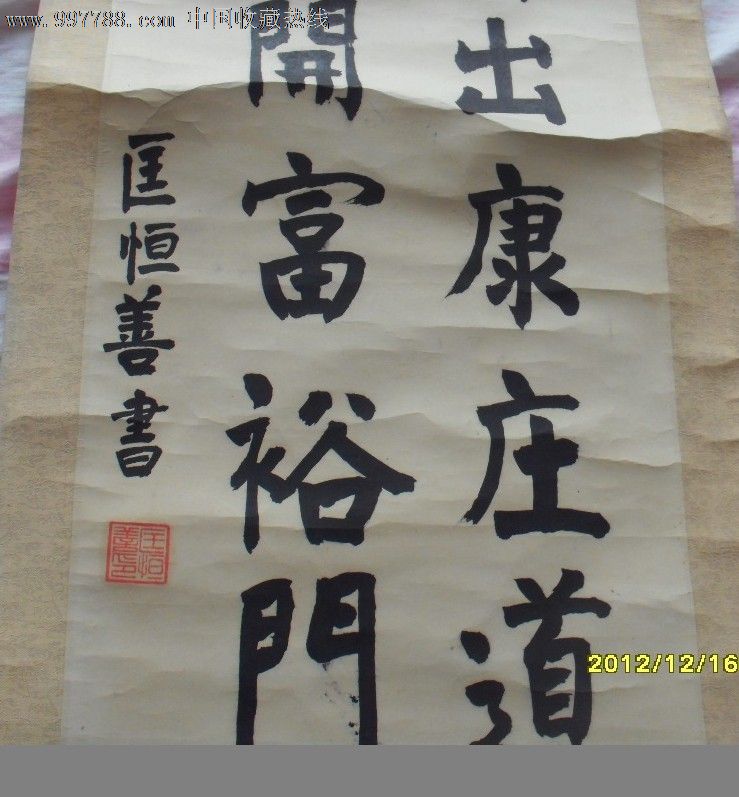 www.997788.com 中国收藏热线
出康庄道
開富裕門
匡恒善書
匡恒善印
2012/12/16